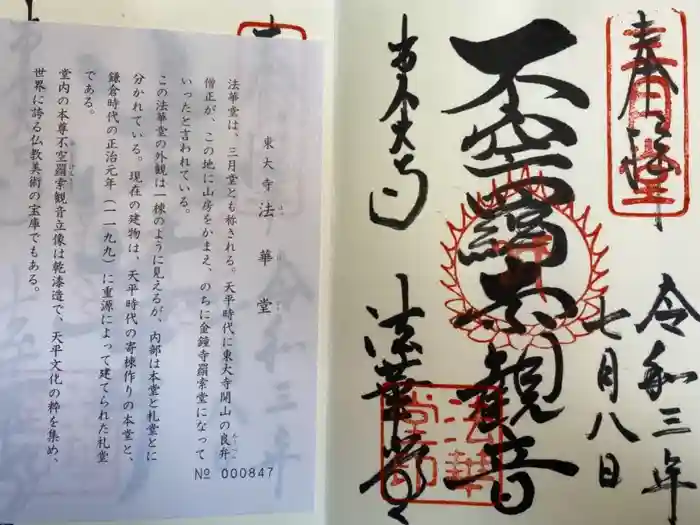 奉拝
令和三年
七月八日
不空羂索観音
東大寺
法華堂
東大寺法華堂
法華堂は、三月堂とも称される。天平時代に東大寺開山の良弁
僧正が、この地に山房をかまえ、のちに金鐘寺羂索堂になって
いったと言われている。
この法華堂の外観は一棟のように見えるが、内部は本堂と礼堂とに
分かれている。現在の建物は、天平時代の寄棟作りの本堂と、
鎌倉時代の正治元年（一一九九）に重源によって建てられた礼堂
である。
堂内の本尊不空羂索観音立像は乾漆造で、天平文化の粋を集め、
世界に誇る仏教美術の宝庫でもある。
№ 000847